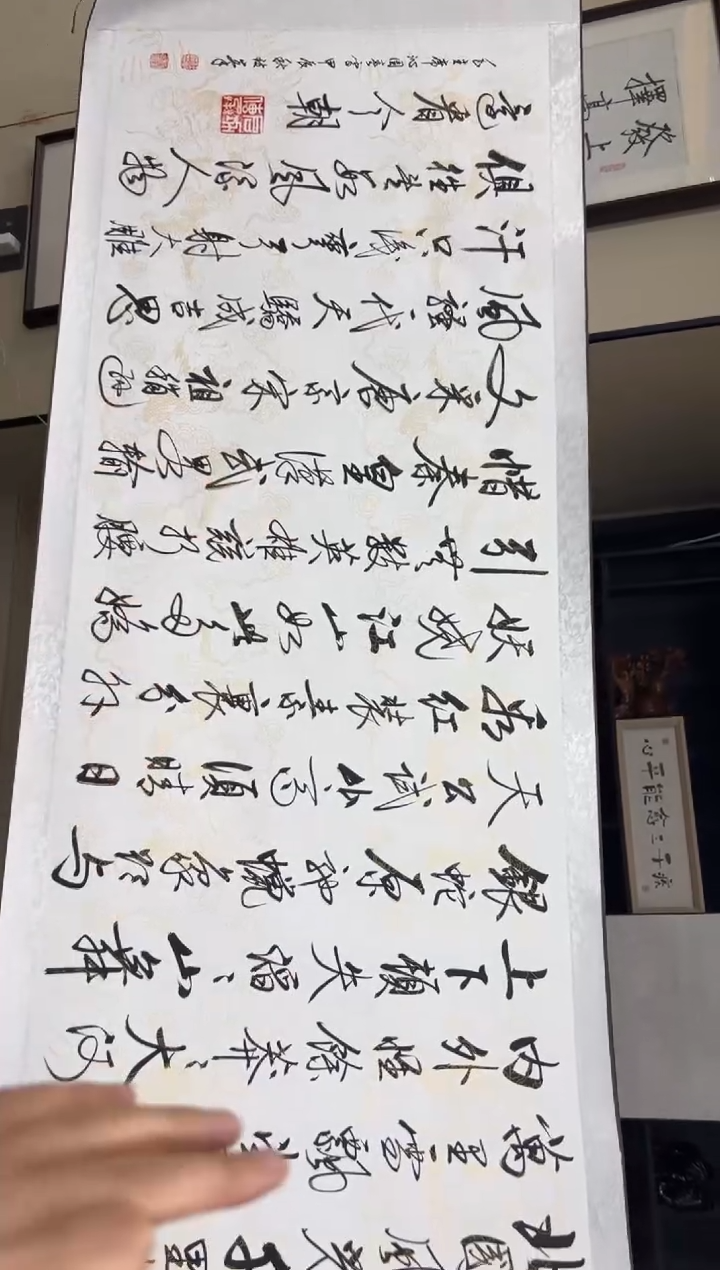 北國風光千里
萬里雪飄
内外惟餘莽〻大河
上下頓失滔〻山舞
銀蛇原馳蠟象欲与
天公試比高須晴日
看紅裝素裹分外
妖嬈江山如此多嬌
引無數英雄競折腰
惜秦皇漢武畧輸
文采唐宗宋祖稍遜
風騷一代天驕成吉思
汗只識彎弓射大雕
俱往矣數風流人物
還看今朝
毛主席沁園春雪甲辰秋
發上
擇高
心平能愈三千疾